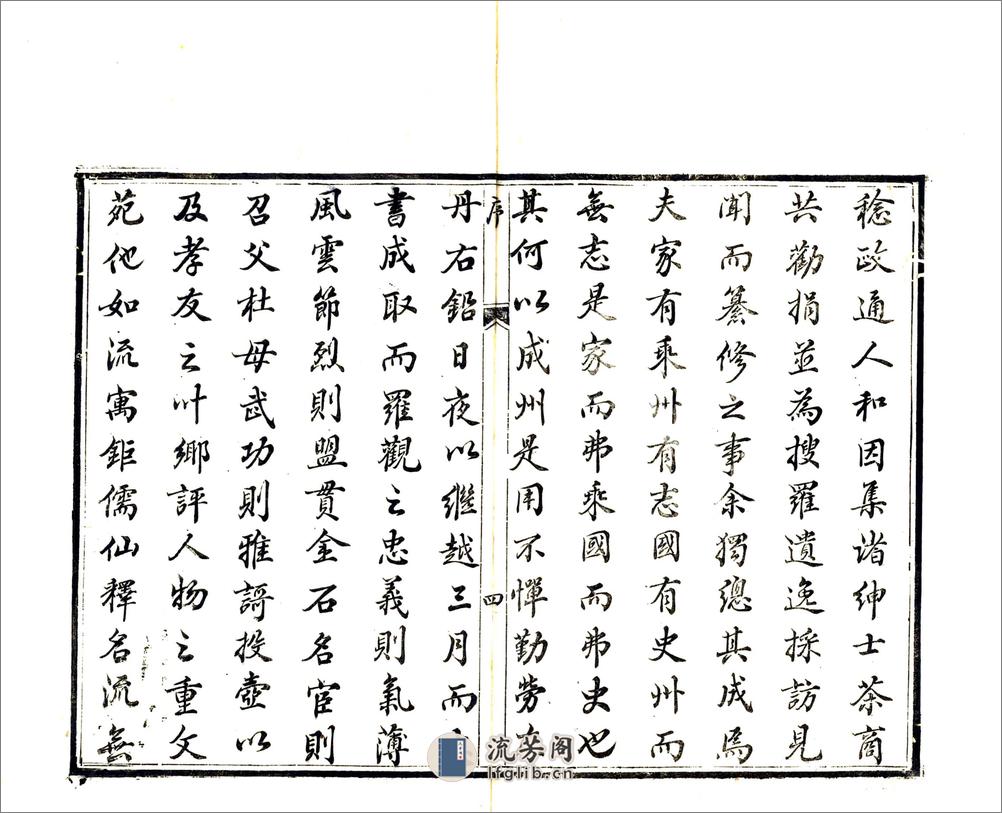 稔政通人和因集诸绅士茶商
共勸捐並為搜羅遺逸採訪見
聞而纂修之事余獨總其成焉
夫家有乘州有志國有史州而
無志是家而弗乘國而弗史也
其何以成州是用不憚勤勞
序
四
丹右鉛日夜以繼越三月而
書成取而羅觀之忠義則氣薄
風雲節烈則盟貫金石名宦則
召父杜母武功則雅謌投壺以
及孝友之叶鄉評人物之重文
苑他如流寓鉅儒仙釋名流無
流芳阁
lfglib.cn